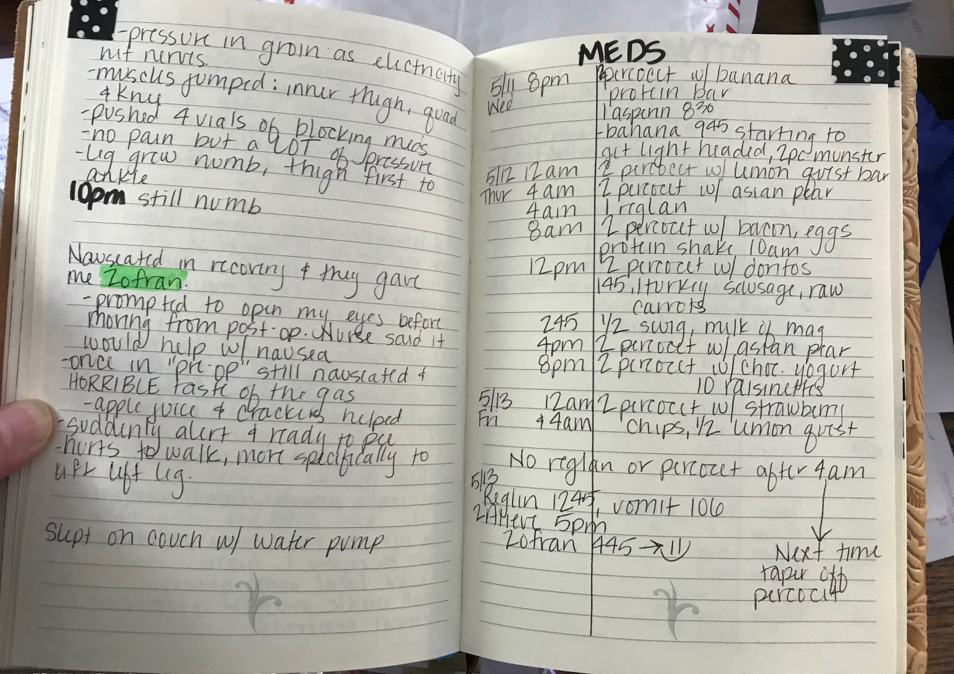 -pressure in groin as electricity
hit nerves.
-muscles jumped: inner thigh, quad
& knee
-pushed 4 vials of blocking meds
-no pain but a LOT of pressure
-leg grew numb, thigh first to
ankle
10pm still numb
Nauseated in recovery & they gave
me Zofran.
-prompted to open my eyes before
moving from post-op. Nurse said it
would help w/ nausea
-once in "pre-op" still nauseated &
HORRIBLE taste of the gas
-apple juice & crackers helped
-suddenly alert & ready to pee
-hurts to walk, more specifically to
lift left leg.
Slept on couch w/ water pump
MEDS
5/11 8pm 2 percocet w/ banana
Wed protein bar
1 aspirin 830
-banana 945 starting to
get light headed, 2pc munster
5/12 12am 2 percocet w/ lemon quest bar
Thur 4am 2 percocet w/ asian pear
4am 1 reglan
8am 2 percocet w/ bacon, eggs
protein shake 10am
12pm 2 percocet w/ doritos
145, 1 turkey sausage, raw
carrots
245 1/2 swig, milk of mag
4pm 2 percocet w/ asian pear
8pm 2 percocet w/ choc. yogurt
10 raisinettes
5/13 12am 2 percocet w/ strawberry
Fri & 4am chips, 1/2 lemon quest
No reglan or percocet after 4am
5/13
Reglin 1245, vomit 106
2 Aleve 5pm
Zofran 445 →
Next time
taper off
percocet